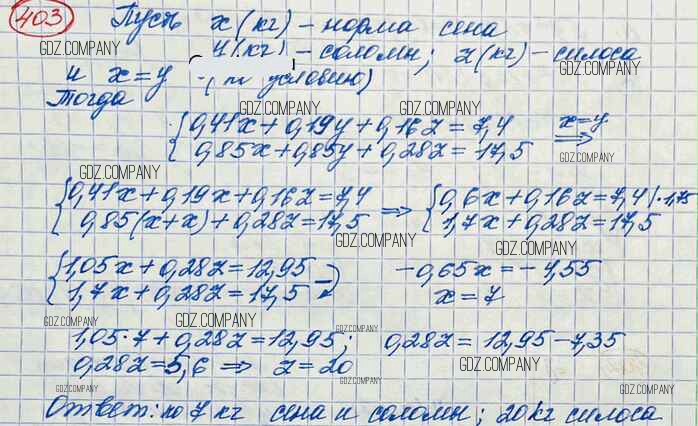 403 Пусть x (кг) – норма сена
GDZ.COMPANY y (кг) – соломы; z (кг) – силоса
GDZ.COMPANY
и x = y (по условию)
Тогда
GDZ.COMPANY GDZ.COMPANY
{0,41x + 0,19y + 0,16z = 7,4 x=y
0,85x + 0,85y + 0,28z = 17,5 ⇒
GDZ.COMPANY
{0,41x + 0,19x + 0,16z = 7,4 ⇒ {0,6x + 0,16z = 7,4 | · 1,75
0,85(x + x) + 0,28z = 17,5 1,7x + 0,28z = 17,5
GDZ.COMPANY GDZ.COMPANY
{1,05x + 0,28z = 12,95 −0,65x = −4,55
1,7x + 0,28z = 17,5 x = 7
GDZ.COMPANY GDZ.COMPANY GDZ.COMPANY
1,05·7 + 0,28z = 12,95; 0,28z = 12,95 − 7,35
0,28z = 5,6 ⇒ z = 20 GDZ.COMPANY
GDZ.COMPANY GDZ.COMPANY GDZ.COMPANY
Ответ: по 7 кг сена и соломы; 20 кг силоса